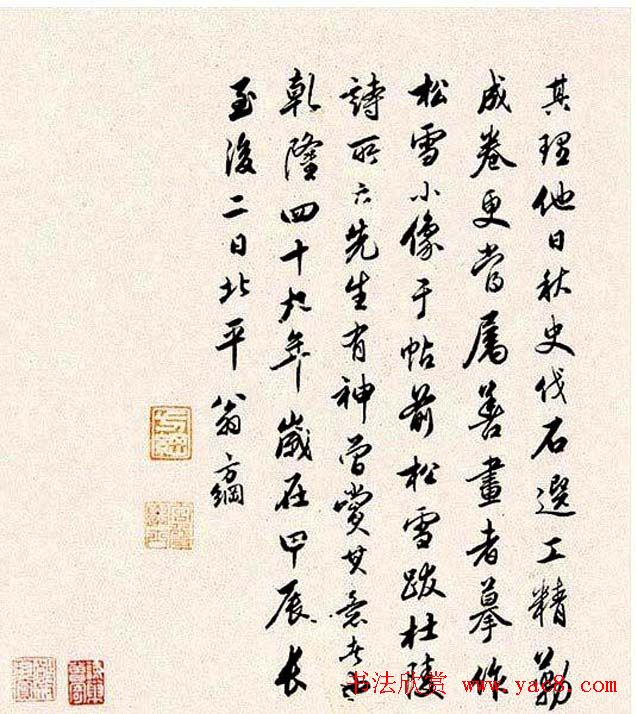 其理他日秋史伐石選工精勒
成卷更當屬善畫者摹作
松雪小像于帖前松雪跋杜陵
詩所云先生有神曾賞其意者
乾隆四十九年歲在甲辰長
至後二日北平翁方綱
书法欣赏 www.yac8.com